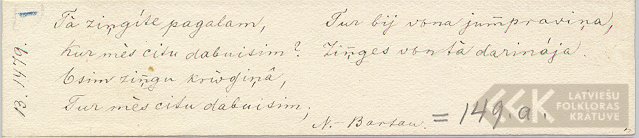 13, 1479
Tà ziņgíte pagalam,
Kur mès citu dabuisim?
Esim ziņgu krôgiņâ,
Tur mès citu dabuisim,
Tur bij vbna jum̃praviņa,
Ziņges vbn tà darinája.
N.-Bartau. = 149.a.
LATVIEŠU
FOLKLORAS
KRATUVE